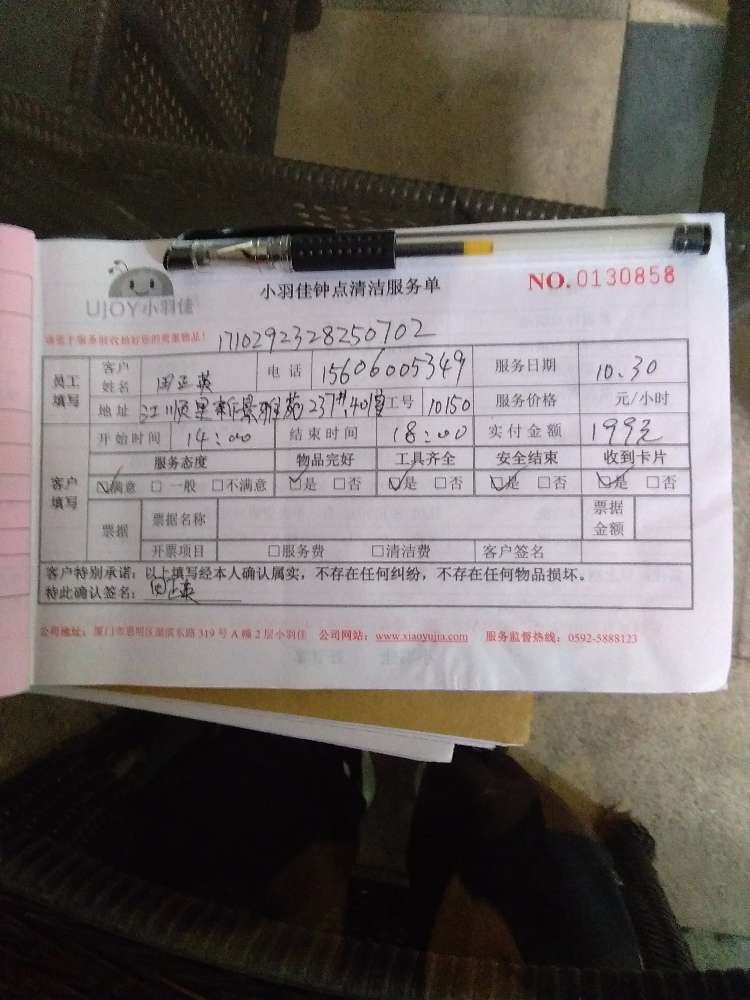 UJOY小羽佳
小羽佳钟点清洁服务单
NO.0130858
请客于服务前收拾好您的贵重物品! 1710292328250702
员工填写 客户姓名 周正英 电话 15606005349 服务日期 10.30
地址 江顺里新景雅苑237#401室 工号 10150 服务价格 元/小时
客户填写 开始时间 14:00 结束时间 18:00 实付金额 199元
服务态度 物品完好 工具齐全 安全结束 收到卡片
☑满意 □一般 □不满意 ☑是 □否 ☑是 □否 ☑是 □否 ☑是 □否
票据 票据名称 票据金额
开票项目 □服务费 □清洁费 客户签名
客户特别承诺:以上填写经本人确认属实,不存在任何纠纷,不存在任何物品损坏。
特此确认签名: 周正英
公司地址: 厦门市思明区湖滨东路 319 号 A 幢 2 层小羽佳 公司网站: www.xiaoyujia.com 服务监督热线: 0592-5888123